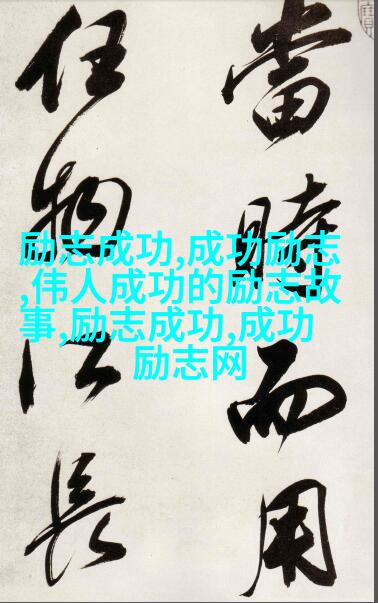 當時而用
任物以長
励志成功,成功励志
,伟人成功的励志故
事,励志成功,成功
励志网